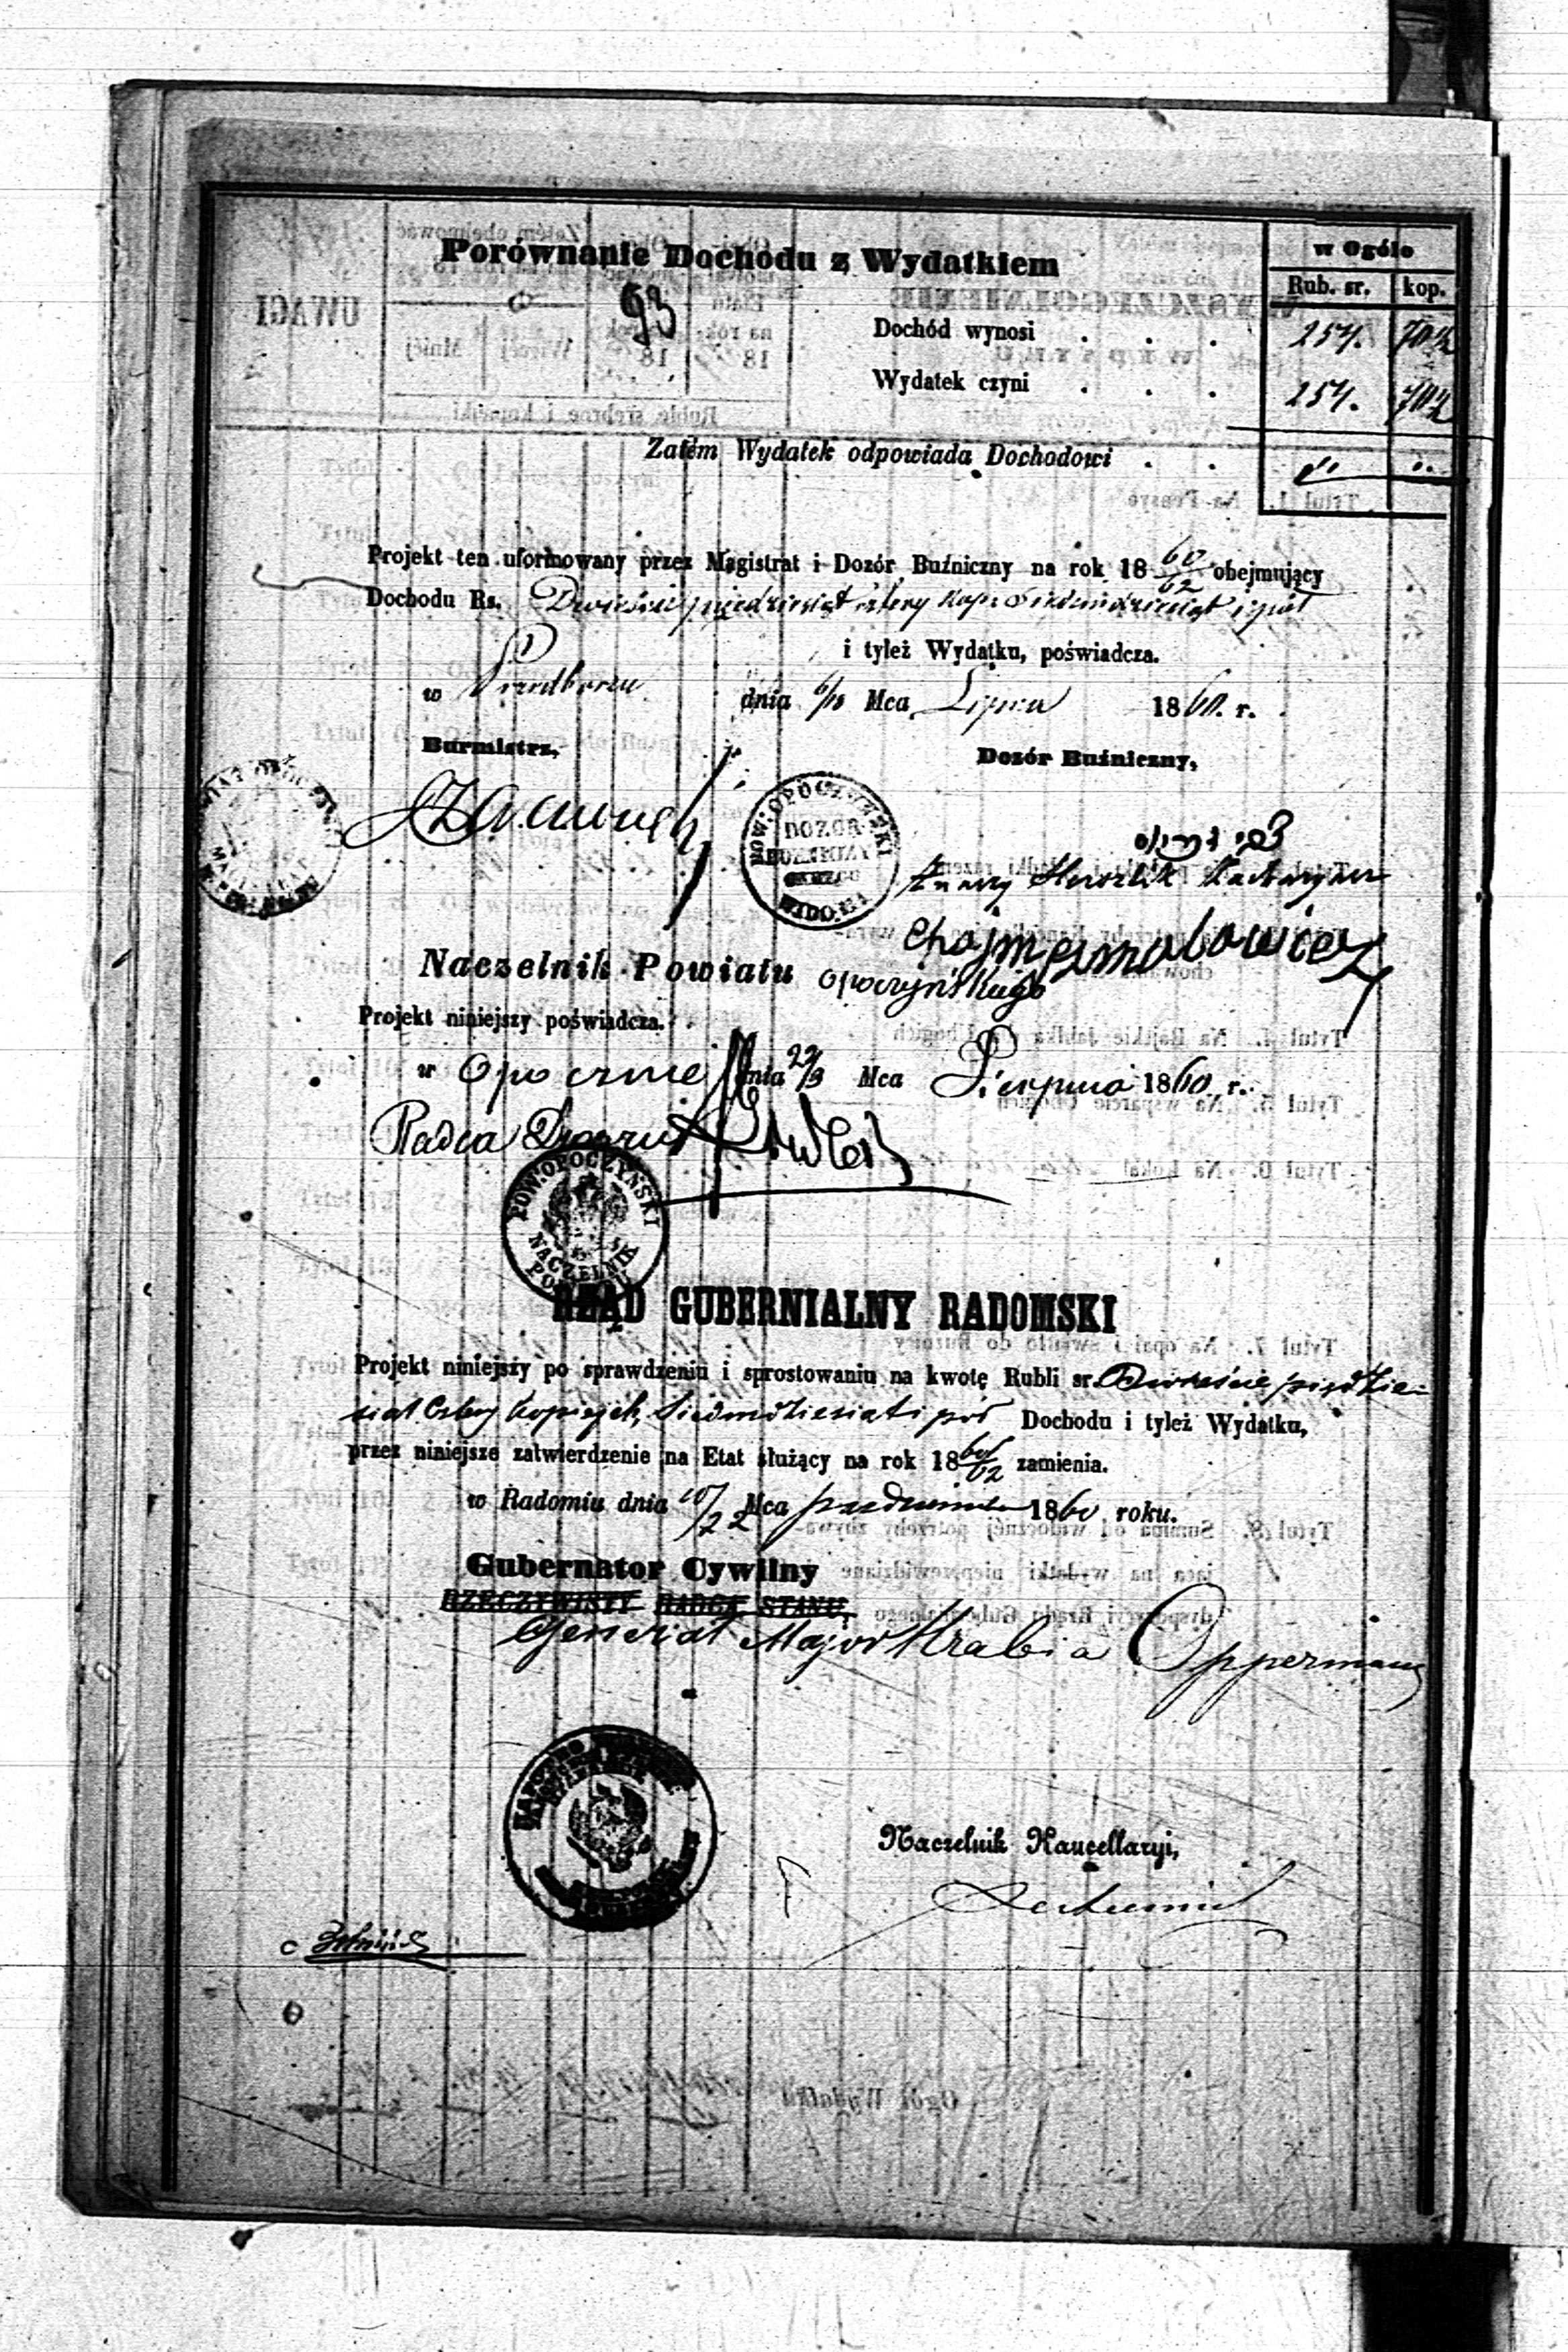 Porównanie Dochodu z Wydatkiem
w Ogóle
Rub. sr. kop.
93
Dochód wynosi . . . 254. 70½
Wydatek czyni . . . 254. 70½
Zatem Wydatek odpowiada Dochodowi . . „ „
Projekt ten uformowany przez Magistrat i Dozór Buźniczny na rok 18 60/62 obejmujący
Dochodu Rs. Dwieście pięćdziesiąt cztery kop. Siedmdziesiąt i pół
i tyleż Wydatku, poświadcza.
w Przedborzu dnia 6/18 Mca Lipca 1860. r.
Burmistrz, Dozór Buźniczny,
POW: OPOCZYŃSKI
DOZÓR
Herszlik
Chaim
Naczelnik Powiatu Opoczyńskiego
Projekt niniejszy poświadcza.
w Opocznie dnia Mca Sierpnia 1860. r.
Radca
POW: OPOCZYŃSKI
NACZELNIK
RZĄD GUBERNIALNY RADOMSKI
Projekt niniejszy po sprawdzeniu i sprostowaniu na kwotę Rubli sr. Dwieście pięćdzie-
siat Cztery Kopiejek Siedmdziesiat i pół Dochodu i tyleż Wydatku,
przez niniejsze zatwierdzenie na Etat służący na rok 18 60/62 zamienia.
w Radomiu dnia 10/22 Mca 1860 roku.
Gubernator Cywilny
RZECZYWISTY RADCA STANU,
Generał Major Hrabia Oppermann
Naczelnik Kancellaryi,